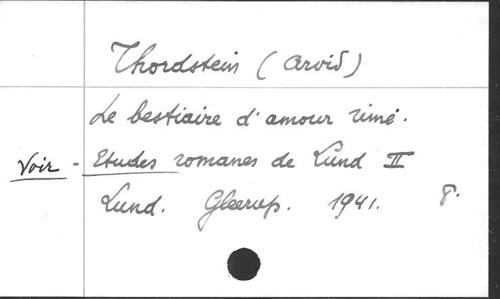 Thordstein (Arvid)
Le bestiaire d'amour rimé.
Voir - Etudes romanes de Lund II
Lund. Gleerup. 1941. 8.